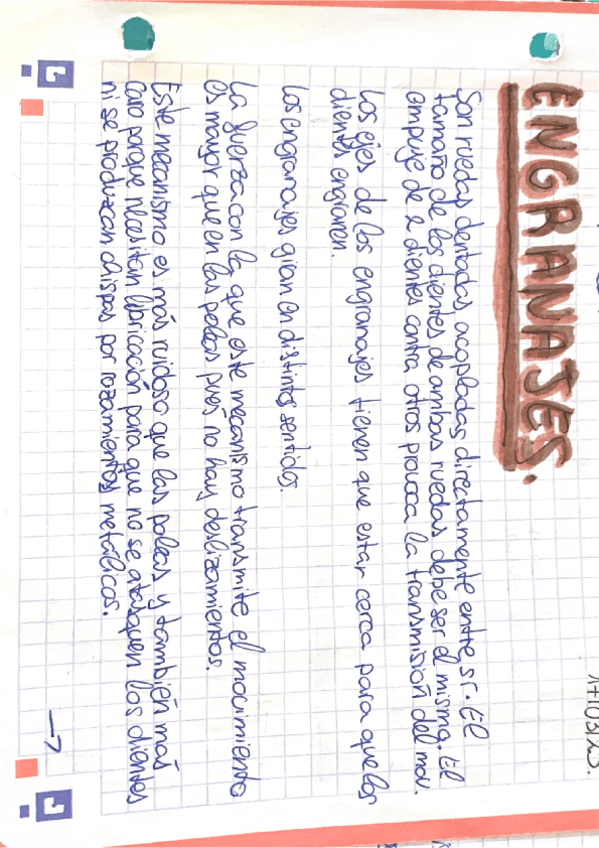 ENGRANAJES.
Son ruedas dentadas acopladas directamente entre sí. El
tamaño de los dientes de ambas ruedas debe ser el mismo. El
empuje de 2 dientes contra otros provoca la transmisión del mov.
Los ejes de los engranajes tienen que estar cerca para que los
dientes engranen.
Los engranajes giran en distintos sentidos.
La fuerza con la que este mecanismo transmite el movimiento
es mayor que en las poleas pues no hay deslizamientos.
Este mecanismo es más ruidoso que las poleas y también más
caro porque necesitan lubricación para que no se atasquen los dientes
ni se produzcan chispas por rozamientos metálicos.
→